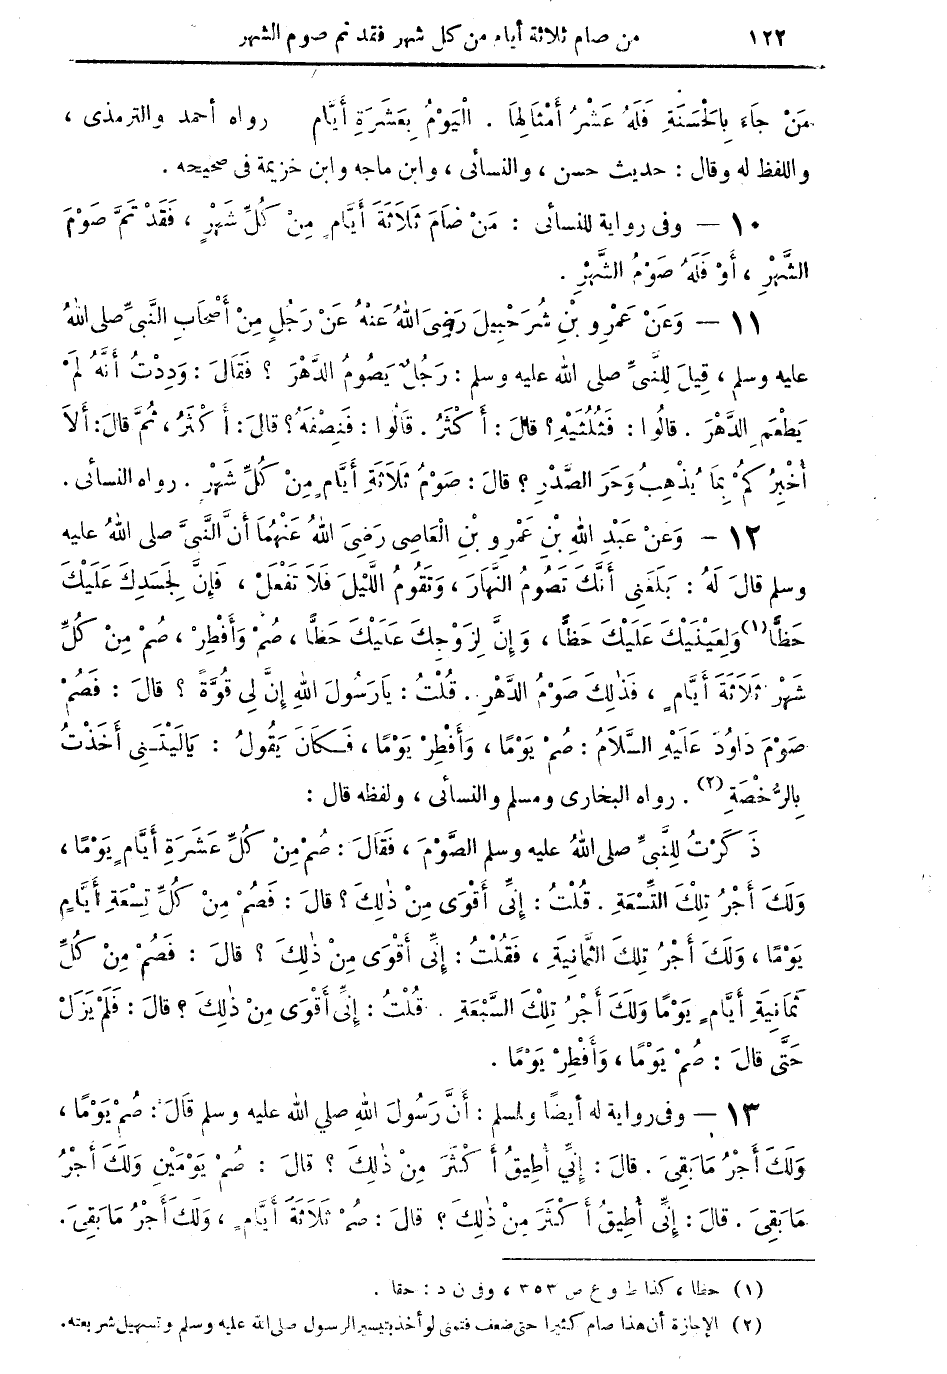 ١٢٢ من صام ثلاثة أيام من كل شهر فقد تم صوم الشهر
مَنْ جَاءَ بِالْحَسَنَةِ فَلَهُ عَشْرُ أَمْثَالِهَا . الْيَوْمُ بِعَشَرَةِ أَيَّامٍ رواه أحمد والترمذى ،
واللفظ له وقال : حديث حسن ، والنسائى ، وابن ماجه وابن خزيمة فى صحيحه .
١٠ — وفى رواية للنسائى : مَنْ صَامَ ثَلَاثَةَ أَيَّامٍ مِنْ كُلِّ شَهْرٍ ، فَقَدْ تَمَّ صَوْمُ
الشَّهْرِ ، أَوْ فَلَهُ صَوْمُ الشَّهْرِ .
١١ — وَعَنْ عَمْرِو بْنِ شُرَحْبِيلَ رَضِىَ اللهُ عَنْهُ عَنْ رَجُلٍ مِنْ أَصْحَابِ النَّبِىِّ صلى اللهُ
عليه وسلم ، قِيلَ لِلنَّبِىِّ صلى الله عليه وسلم : رَجُلٌ يَصُومُ الدَّهْرَ ؟ فَقَالَ : وَدِدْتُ أَنَّهُ لَمْ
يَطْعَمِ الدَّهْرَ . قالُوا : فَثُلُثَيْهِ ؟ قالَ : أَكْثَرُ . قَالُوا : فَنِصْفَهُ ؟ قالَ : أَكْثَرُ ، ثُمَّ قالَ : أَلاَ
أُخْبِرُكُمْ بِمَا يُذْهِبُ وَحَرَ الصَّدْرِ ؟ قالَ : صَوْمُ ثَلَاثَةِ أَيَّامٍ مِنْ كُلِّ شَهْرٍ . رواه النسائى .
١٢ — وَعَنْ عَبْدِ اللهِ بْنِ عَمْرِو بْنِ الْعَاصِى رَضِىَ اللهُ عَنْهُمَا أَنَّ النَّبِىَّ صلى اللهُ عليه
وسلم قالَ لَهُ : بَلَغَنِى أَنَّكَ تَصُومُ النَّهَارَ ، وَتَقُومُ اللَّيْلَ فَلَا تَفْعَلْ ، فَإِنَّ لِجَسَدِكَ عَلَيْكَ
حَظًّا (١) وَلِعَيْنَيْكَ عَلَيْكَ حَظًّا ، وَإِنَّ لِزَوْجِكَ عَلَيْكَ حَظًّا ، صُمْ وَأَفْطِرْ ، صُمْ مِنْ كُلِّ
شَهْرٍ ثَلَاثَةَ أَيَّامٍ ، فَذَلِكَ صَوْمُ الدَّهْرِ . قُلْتُ : يَارَسُولَ اللهِ إِنَّ لِى قُوَّةً ؟ قالَ : فَصُمْ
صَوْمَ دَاوُدَ عَلَيْهِ السَّلَامُ : صُمْ يَوْمًا ، وَأَفْطِرْ يَوْمًا ، فَكَانَ يَقُولُ : يَالَيْتَنِى أَخَذْتُ
بِالرُّخْصَةِ (٢) . رواه البخارى ومسلم والنسائى ، ولفظه قال :
ذَكَرْتُ لِلنَّبِىِّ صلى اللهُ عليه وسلم الصَّوْمَ ، فَقَالَ : صُمْ مِنْ كُلِّ عَشَرَةِ أَيَّامٍ يَوْمًا ،
وَلَكَ أَجْرُ تِلْكَ التِّسْعَةِ . قُلْتُ : إِنِّى أَقْوَى مِنْ ذٰلِكَ ؟ قالَ : فَصُمْ مِنْ كُلِّ تِسْعَةِ أَيَّامٍ
يَوْمًا ، وَلَكَ أَجْرُ تِلكَ الثَّمَانِيَةِ ، فَقُلْتُ : إِنِّى أَقْوَى مِنْ ذٰلِكَ ؟ قالَ : فَصُمْ مِنْ كُلِّ
ثَمَانِيَةِ أَيَّامٍ يَوْمًا وَلَكَ أَجْرُ تِلْكَ السَّبْعَةِ . قُلْتُ : إِنِّى أَقْوَى مِنْ ذٰلِكَ ؟ قالَ : فَلَمْ يَزَلْ
حَتَّى قالَ : صُمْ يَوْمًا ، وَأَفْطِرْ يَوْمًا .
١٣ — وفى رواية له أيضًا ولمسلم : أَنَّ رَسُولَ اللهِ صلي الله عليه وسلم قَالَ : صُمْ يَوْمًا ،
وَلَكَ أَجْرُ مَا بَقِىَ . قالَ : إِنِّي أُطِيقُ أَكْثَرَ مِنْ ذٰلِكَ ؟ قالَ : صُمْ يَوْمَيْنِ وَلَكَ أَجْرُ
مَا بَقِىَ . قالَ : إِنِّى أُطِيقُ أَكْثَرَ مِنْ ذٰلِكَ ؟ قالَ : صُمْ ثَلَاثَةَ أَيَّامٍ ، وَلَكَ أَجْرُ مَا بَقِىَ .
(١) حظا ، كذا ط و ع ص ٣٥٣ ، وفى ن د : حقا .
(٢) الإجازة أن هذا صام كثيرا حتى ضعف فتمنى لو أخذ بتيسير الرسول صلى الله عليه وسلم وتسهيل شريعته .